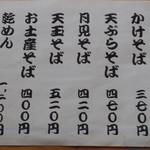 かけそば 三七〇円
天ぷらそば 四七〇円
月見そば 四二〇円
天玉そば 五二〇円
お土産そば 四〇〇円
乾めん 一、二〇〇円